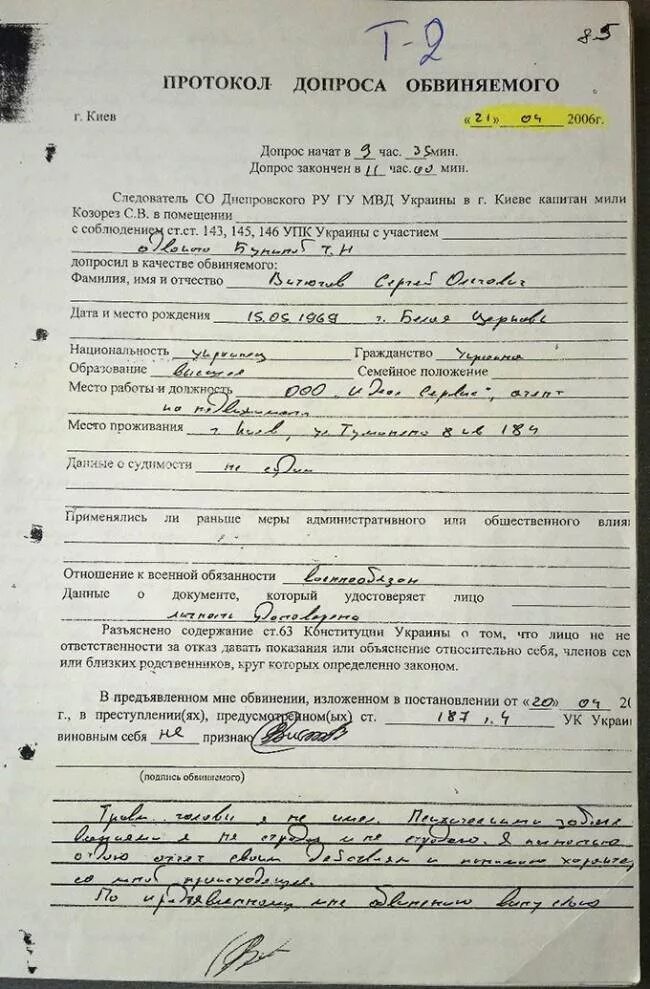 Т-2
85
ПРОТОКОЛ ДОПРОСА ОБВИНЯЕМОГО
г. Киев «21» 04 2006г.
Допрос начат в 9 час. 35 мин.
Допрос закончен в 11 час. 00 мин.
Следователь СО Днепровского РУ ГУ МВД Украины в г. Киеве капитан мили
Козорез С.В. в помещении
с соблюдением ст.ст. 143, 145, 146 УПК Украины с участием
допросил в качестве обвиняемого:
Фамилия, имя и отчество Сергей Олегович
Дата и место рождения 15.05.1969 г. Белая Церковь
Национальность украинец Гражданство Украина
Образование высшее Семейное положение
Место работы и должность ООО Сервис", агент
по недвижимости
Место проживания г. Киев, ул. Туманяна 8 кв 184
Данные о судимости не судим
Применялись ли раньше меры административного или общественного влиян
Отношение к военной обязанности военнообязан
Данные о документе, который удостоверяет лицо
личность удостоверена
Разъяснено содержание ст.63 Конституции Украины о том, что лицо не не
ответственности за отказ давать показания или объяснение относительно себя, членов сем
или близких родственников, круг которых определенно законом.
В предъявленном мне обвинении, изложенном в постановлении от «20» 04 20
г., в преступлении(ях), предусмотренном(ых) ст. 187 ч. 4 УК Украи
виновным себя не признаю
(подпись обвиняемого)
Травм головы я не имел. Психическими заболе
ваниями я не страдал и не страдаю. Я полностью
отдаю отчет своим действиям и понимаю характер
со мной происходящее.
По предъявленному мне обвинению